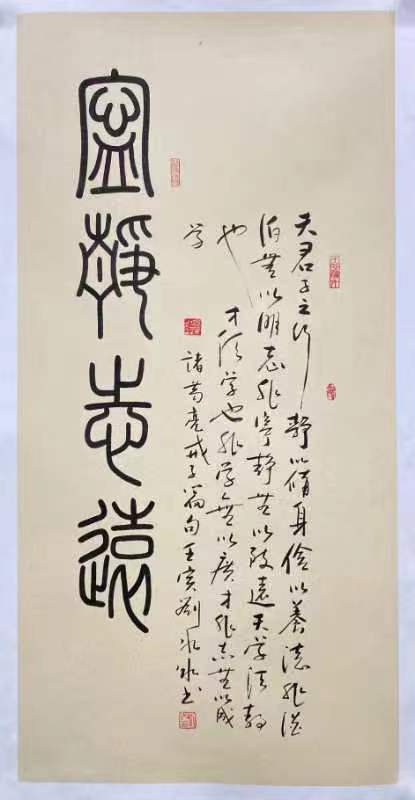 寍靜志遠
夫君子之行靜以脩身儉以養德非澹
泊無以明志非寧靜無以致遠夫學須靜
也才須學也非學無以廣才非志無以成
学
諸葛亮戒子篇句壬寅劉书